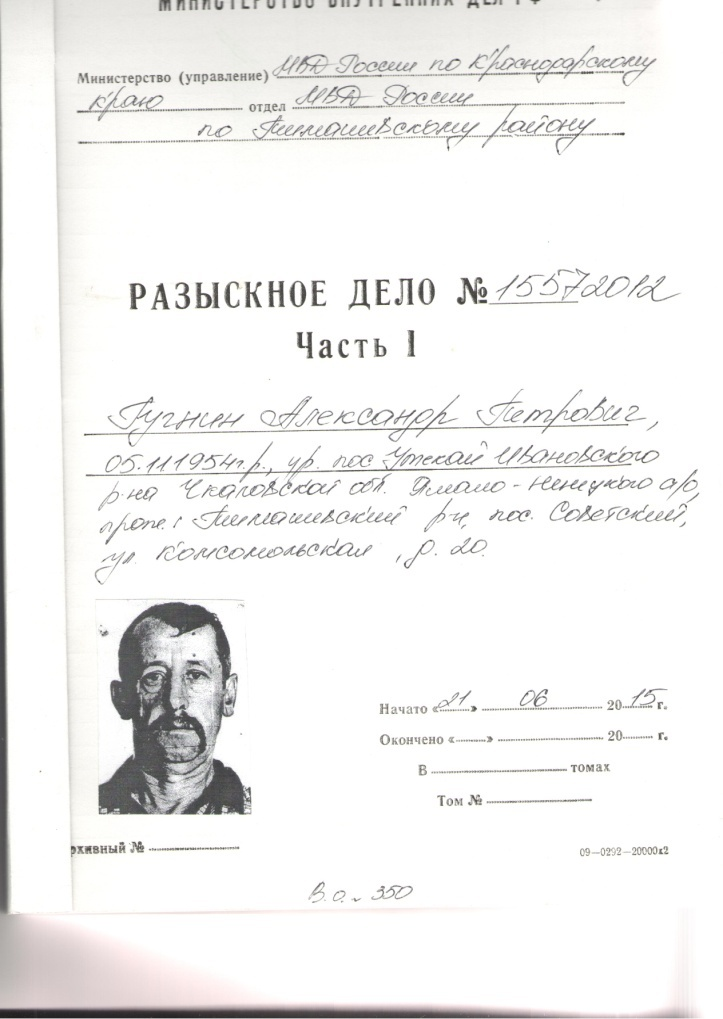 МИНИСТЕРСТВО ВНУТРЕННИХ ДЕЛ РФ
Министерство (управление) МВД России по Краснодарскому
краю отдел МВД России
по Тимашевскому району
РАЗЫСКНОЕ ДЕЛО № 15572012
Часть I
Пугнин Александр Петрович,
05.11.1954г.р., ур. пос Ивановского
р-на Чкаловской обл. Ямало-Ненецкого а/о,
Тимашевский р-н, пос. Советский,
ул. Комсомольская, д. 20.
Начато «21» 06 2015 г.
Окончено «» 20 г.
В томах
Том №
рхивный №
09—0292—20000х2
350